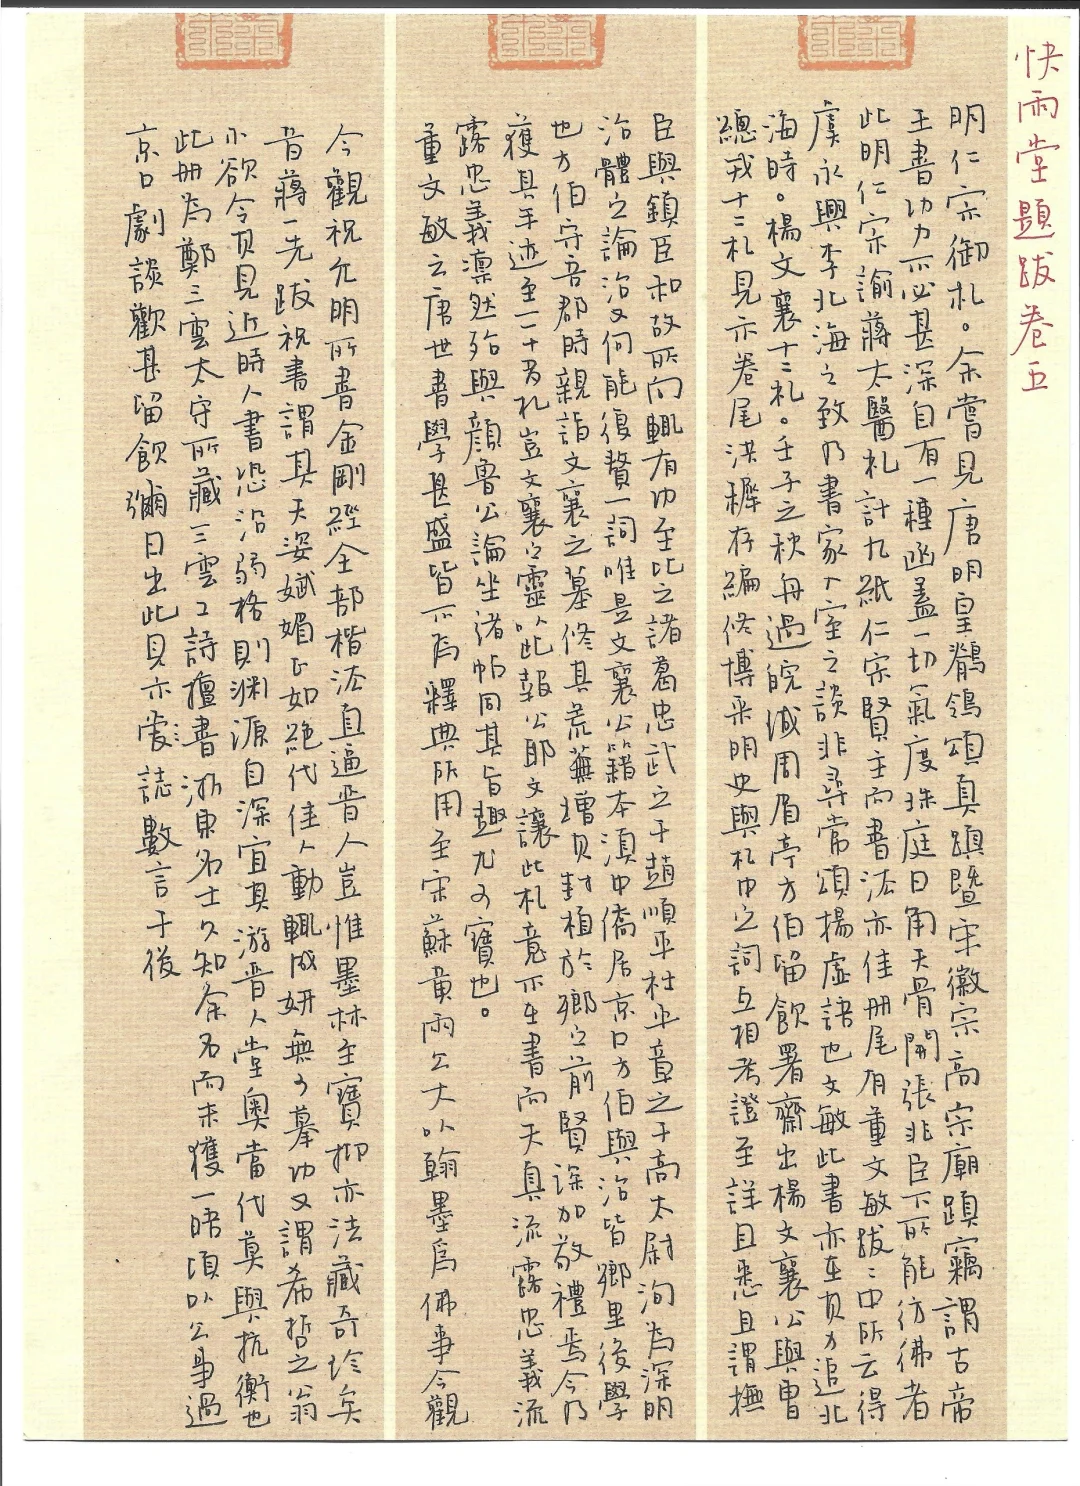 快雨堂題跋卷五
明仁宗御札。余嘗見唐明皇鶺鴒頌真蹟暨宋徽宗高宗廟蹟竊謂古帝
王書功力不必甚深自有一種函蓋一切氣度珠庭日角天骨開張非臣下所能彷彿者
此明仁宗諭蔣太醫札計九紙仁宗賢主而書法亦佳冊尾有董文敏跋:中所云得
虞永興李北海之致乃書家入室之談非尋常頌揚虛語也文敏此書亦在有力追北
海時。楊文襄十二札。壬子之秋舟過皖城周眉亭方伯留飲署齋出楊文襄公與曹
總戎十二札見示卷尾洪穉存編修博采明史與札中之詞互相考證至詳且悉且謂撫
臣與鎮臣和故所向輒有功至比之諸葛忠武之于趙順平杜平章之于高太尉洵為深明
治體之論治又何能復贅一詞唯是文襄公籍本滇中僑居京口方伯與治皆鄉里後學
也方伯守吾郡時親詣文襄之墓修其荒蕪增其封植於鄉之前賢深加敬禮焉今乃
獲其手迹至二十有札豈文襄之靈以此報公耶文讓此札竟不在書而天真流露忠義流
露忠義凛然殆與顏魯公論坐諸帖同其旨趣尤可寶也。
董文敏云唐世書學甚盛皆不為釋典所用至宋蘇黃兩公大以翰墨爲佛事今觀
今觀祝允明所書金剛經全部楷法直逼晋人豈惟墨林至寶抑亦法藏奇珍矣
昔蔣一先跋祝書謂其天姿斌媚正如絕代佳人動輒成妍無可摹功又謂希哲之翁
不欲令其見近時人書恐沿弱格則渊源自深宜其游晋人堂奧當代莫與抗衡也
此冊為鄭三雲太守所藏三雲工詩擅書浙東名士久知余名而未獲一晤頃以公事過
京口劇談歡甚留飲彌日出此見示爰誌數言于後